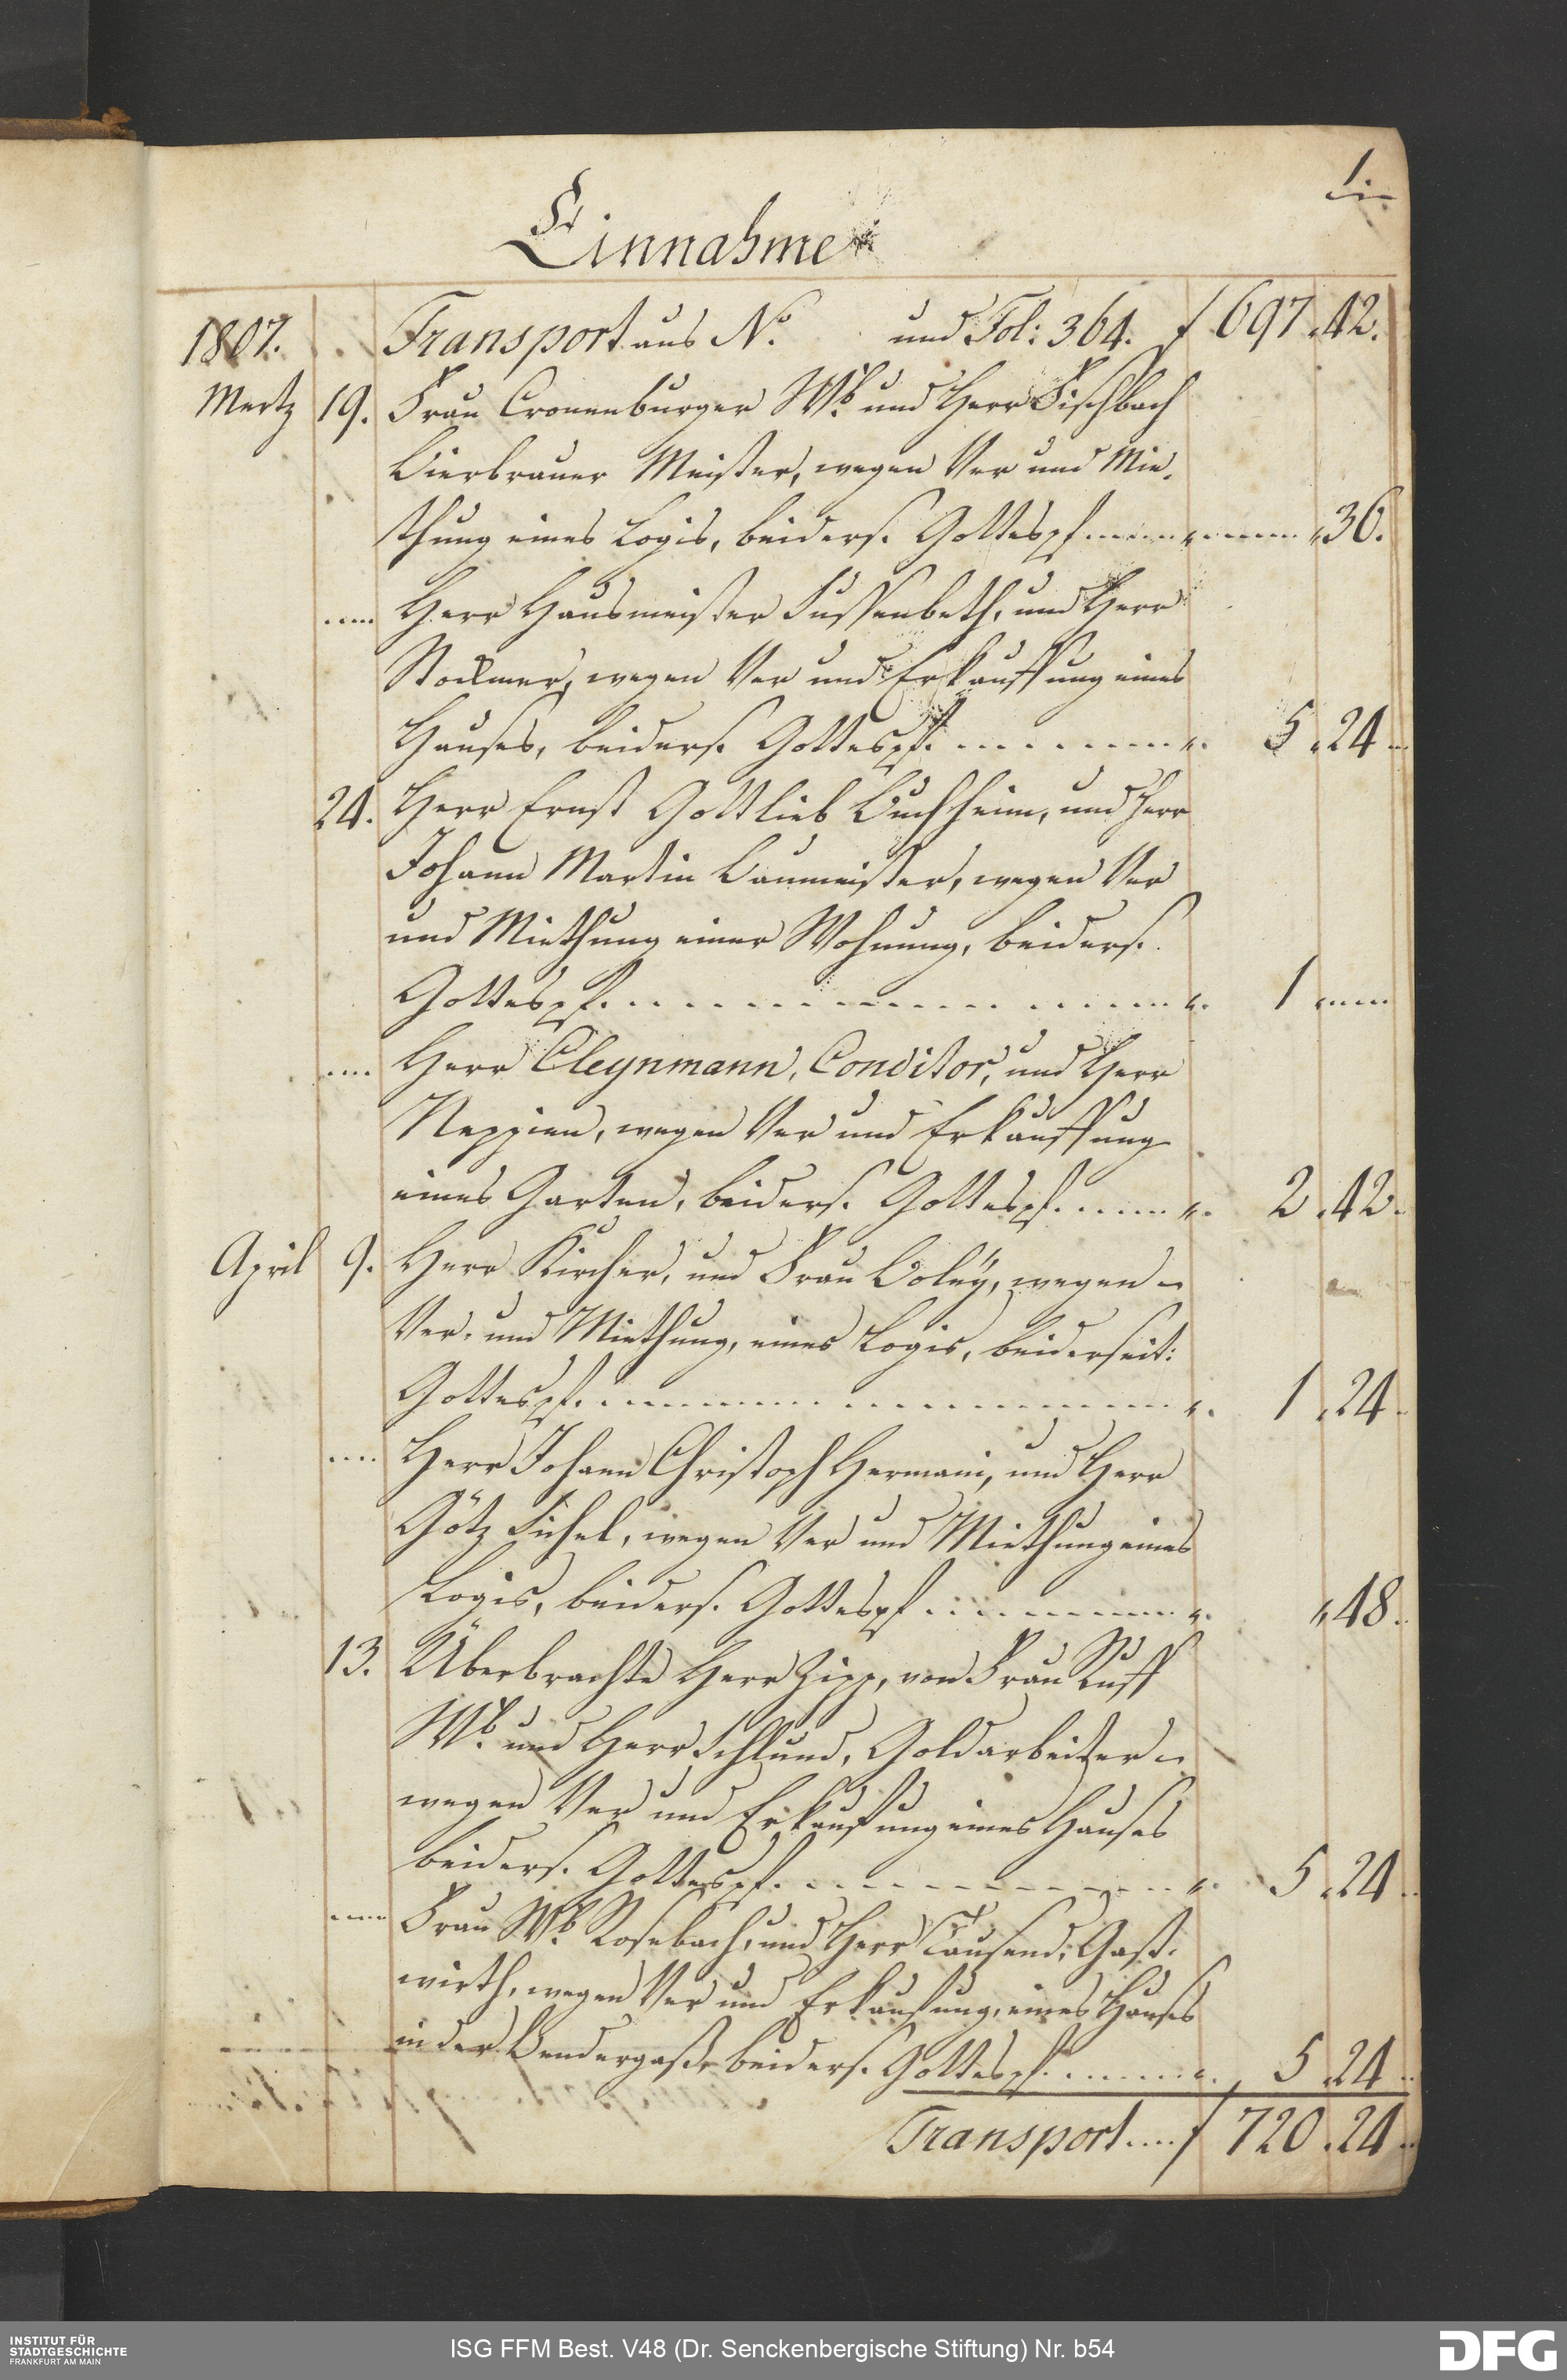 1.
Einnahme
1807. Transport aus No. und Fol: 364. f 697 . 42.
Mertz 19. Frau Cronenburger Wb. und Herr Fischbach
Bierbrauer Meister, wegen Ver und Mie-
thung eines Logis, beiders. Gottespf. " 36.
Herr Hausmeister Fussenbeth, und Herr
Stockmar, wegen Ver und Erkauffung eines
Hauses, beiders. Gottespf. 5 . 24
24. Herr Ernst Gottlieb Buchheim, und Herr
Johann Martin Baumeister, wegen Ver
und Miethung einer Wohnung, beiders.
Gottespf. 1
Herr Cleynmann, Conditor, und Herr
Neppien, wegen Ver und Erkauffung
eines Garten, beiders. Gottespf. 2 . 42.
April 9. Herr Kircher, und Frau Boley, wegen
Ver- und Miethung, eines Logis, beiderseit:
Gottespf. 1 . 24
Herr Johann Christoph Hermani, und Herr
Götz Fichel, wegen Ver und Miethung eines
Logis, beiders. Gottespf " 48.
13. Überbrachte Herr Zipp, von Frau Ruff
Wb. und Herr Schlund, Goldarbeiter
wegen Ver und Erkaufung eines Hauses
beiders. Gottespf. 5 . 24
Frau Wb. Rosebach, und Herr Tausend, Gast-
wirth, wegen Ver und Erkaufung, eines Hauses
in der Bendergaße beiders. Gottespf. 5 . 24
Transport f 720 . 24
INSTITUT FÜR
STADTGESCHICHTE
FRANKFURT AM MAIN
ISG FFM Best. V48 (Dr. Senckenbergische Stiftung) Nr. b54
DFG